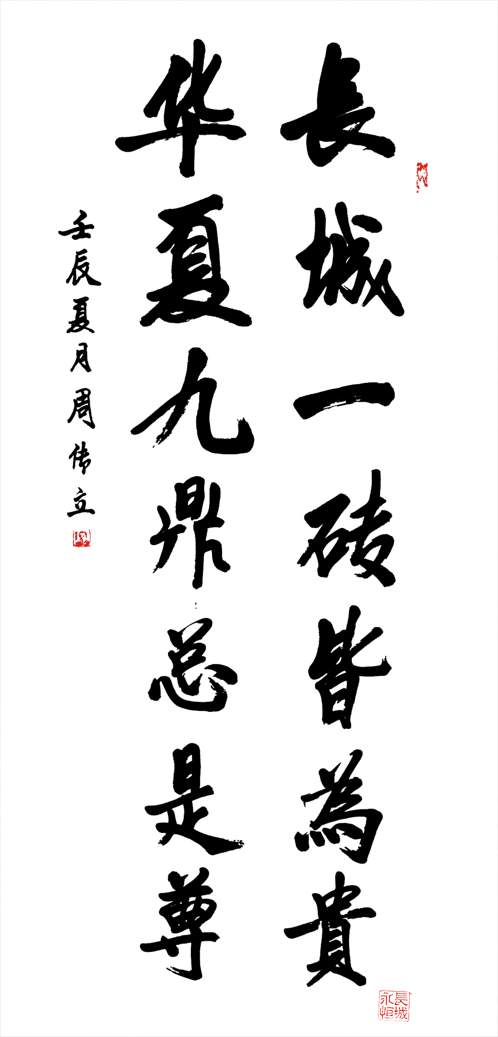 長城一砖皆為貴
华夏九鼎总是尊
壬辰夏月周伟立
長城永恒